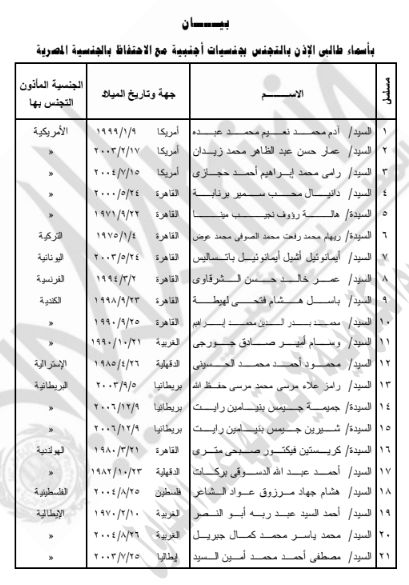 بيـــــان
بأسماء طالبى الإذن بالتجنس بجنسيات أجنبية مع الاحتفاظ بالجنسية المصرية
مسلسل الاســـم جهة وتاريخ الميلاد الجنسية المأذون التجنس بها
١ السيد/ آدم محمد نعيم محمد عبده أمريكا ١٩٩٩/١/٩ الأمريكية
٢ السيد/ عمار حسن عبد الظاهر محمد زيدان أمريكا ٢٠٠٣/٢/١٧ »
٣ السيد/ رامى محمد إبراهيم أحمد حجازى أمريكا ٢٠٠٤/٧/١٥ »
٤ السيد/ دانيال محب سمير برنابة القاهرة ٢٠٠٠/٥/٢٤ »
٥ السيدة/ هالة رؤوف نجيب مينا القاهرة ١٩٧١/٩/٢٢ »
٦ السيدة/ ريهام محمد رفعت محمد الصوفى محمد عوض القاهرة ١٩٧٥/١/٤ التركية
٧ السيد/ أيمانوئيل أشيل أيمانوئيل باتساليس القاهرة ٢٠٠٣/٥/٢٤ اليونانية
٨ السيد/ عمر خالد حسن الشرقاوى القاهرة ١٩٩٤/٣/٢ الفرنسية
٩ السيد/ باسل هشام فتحى لهيطة القاهرة ١٩٩٨/٩/٢٣ الكندية
١٠ السيد/ محمد بدر الدين محمد إبراهيم القاهرة ١٩٩٠/٩/٢٥ »
١١ السيد/ وسام أمير صادق جورجى الغربية ١٩٩٠/١٠/٢١ »
١٢ السيد/ محمود أحمد محمد الحسينى الدقهلية ١٩٨٥/٤/٢٦ الإسترالية
١٣ السيد/ رامز علاء مرسى محمد مرسى حفظ الله بريطانيا ٢٠٠٣/٩/٥ البريطانية
١٤ السيدة/ جميمة جيمس بنيامين رايت بريطانيا ٢٠٠٦/١٢/٩ »
١٥ السيدة/ شيرين جيمس بنيامين رايت بريطانيا ٢٠٠٦/١٢/٩ »
١٦ السيدة/ كريستين فيكتور صبحى مترى القاهرة ١٩٨٠/٣/٢١ الهولندية
١٧ السيد/ أحمد عبد الله الدسوقى بركات الدقهلية ١٩٨٢/١٠/٢٣ »
١٨ السيد/ هشام جهاد مرزوق عواد الشاعر فلسطين ٢٠٠٤/٨/٢٥ الفلسطينية
١٩ السيد/ أحمد السيد عبد ربه أبو النصر الغربية ١٩٧٠/٢/١٠ الإيطالية
٢٠ السيد/ محمد ياسر محمد كمال جبريل الغربية ٢٠٠٤/٨/٢٦ »
٢١ السيد/ مصطفى أحمد محمد أمين السيد إيطاليا ٢٠٠٣/٧/٢٥ »